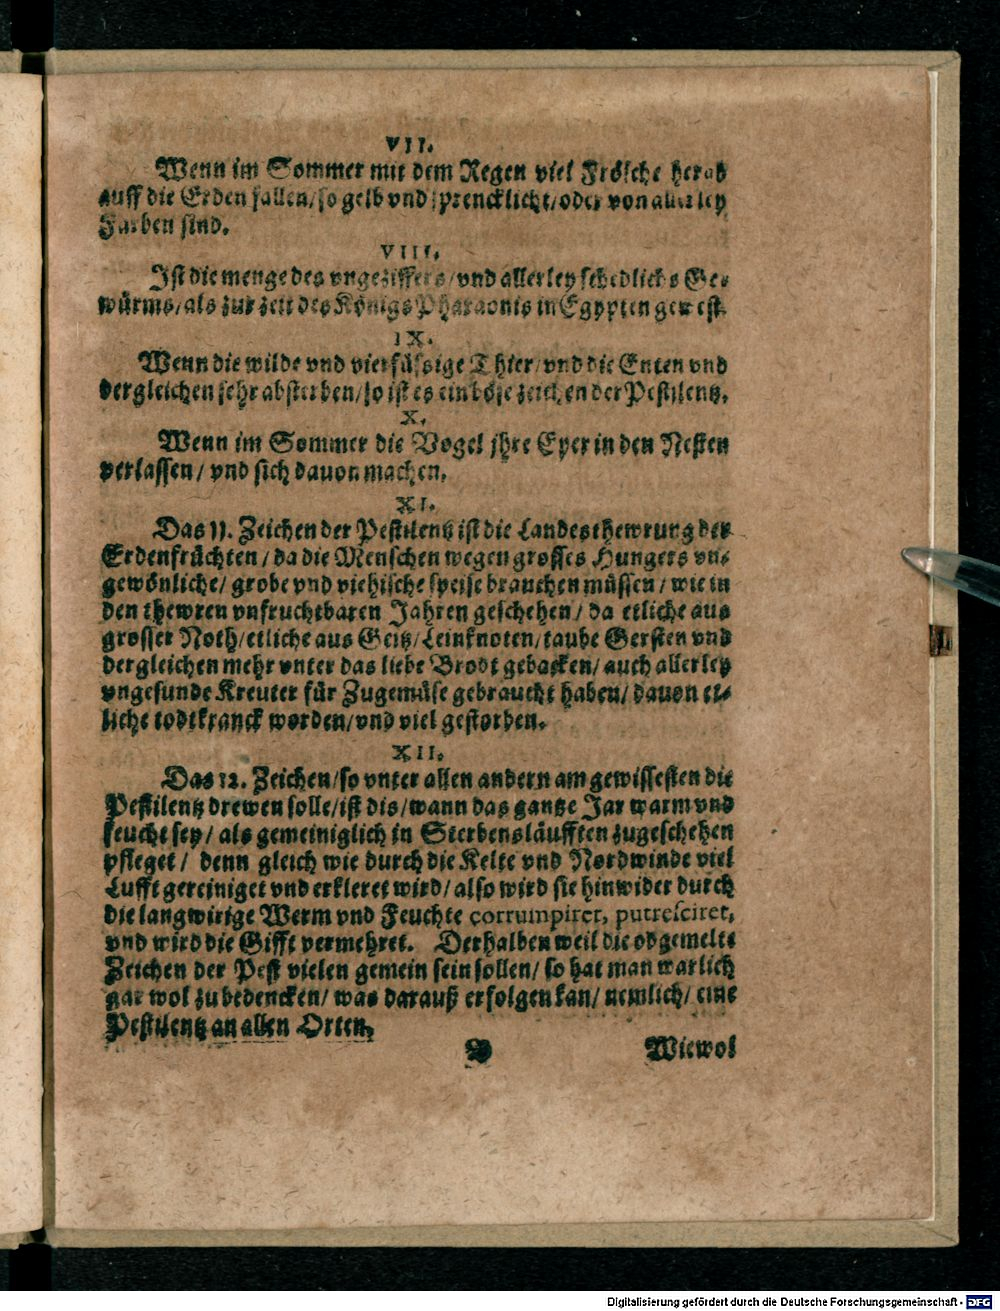 VII.
Wenn im Sommer mit dem Regen viel Frösche herab
auff die Erden fallen/ so gelb vnd sprencklicht/ oder von allerley
Farben sind.
VIII.
Ist die menge des vngeziffers/ vnd allerley schedlichs Ge-
würms/ als zur zeit des Königs Pharaonis in Egypten gewest.
IX.
Wenn die wilde vnd vierfüssige Thier/ vnd die Enten vnd
dergleichen sehr absterben/ so ist es ein böse zeichen der Pestilentz.
X.
Wenn im Sommer die Vogel jhre Eyer in den Nesten
verlassen/ vnd sich dauon machen.
XI.
Das 11. Zeichen der Pestilentz ist die Landesthewrung der
Erdenfrüchten/ da die Menschen wegen grosses Hungers vn-
gewönliche/ grobe vnd viehische speise brauchen müssen/ wie in
den thewren vnfruchtbaren Jahren geschehen/ da etliche aus
grosser Noth/ etliche aus Geitz/ Leinknoten/ taube Gersten vnd
dergleichen mehr vnter das liebe Brodt gebacken/ auch allerley
vngesunde Kreuter für Zugemüse gebraucht haben/ dauon et-
liche todtkranck worden/ vnd viel gestorben.
XII.
Das 12. Zeichen/ so vnter allen andern am gewissesten die
Pestilentz drewen solle/ ist dis/ wann das gantze Jar warm vnd
feucht sey/ als gemeiniglich in Sterbensläufften zugeschehen
pfleget/ denn gleich wie durch die Kelte vnd Nordwinde viel
Lufft gereiniget vnd erkleret wird/ also wird sie hinwider durch
die langwirige Werm vnd Feuchte corrumpiret, putresciret,
vnd wird die Gifft vermehret. Derhalben weil die obgemelte
Zeichen der Pest vielen gemein sein sollen/ so hat man warlich
gar wol zu bedencken/ was darauß erfolgen kan/ nemlich/ eine
Pestilentz an allen Orten.
Wiewol
Digitalisierung gefördert durch die Deutsche Forschungsgemeinschaft - DFG